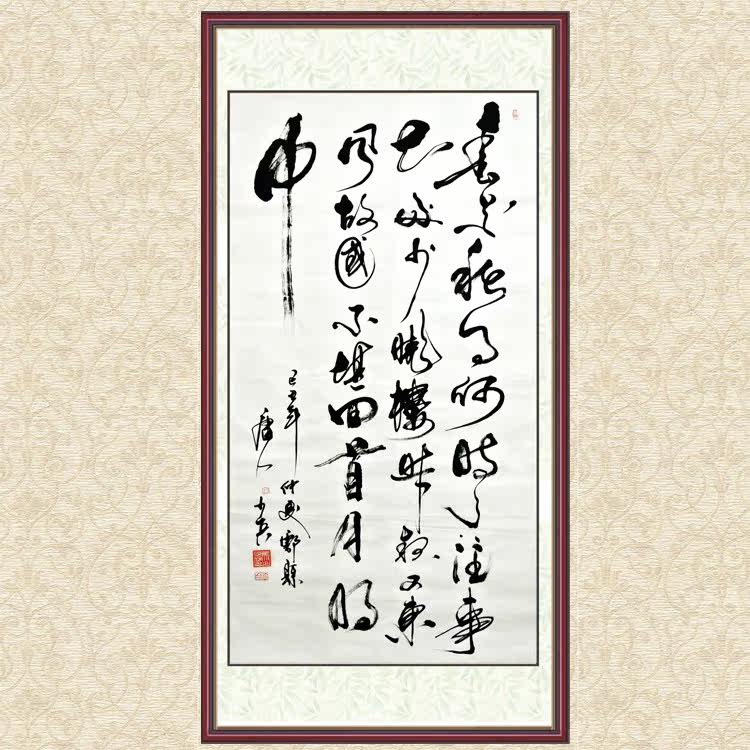 春花秋月何時了往事
知多少小樓昨夜又東
風故國不堪回首月明
中
己丑年仲夏